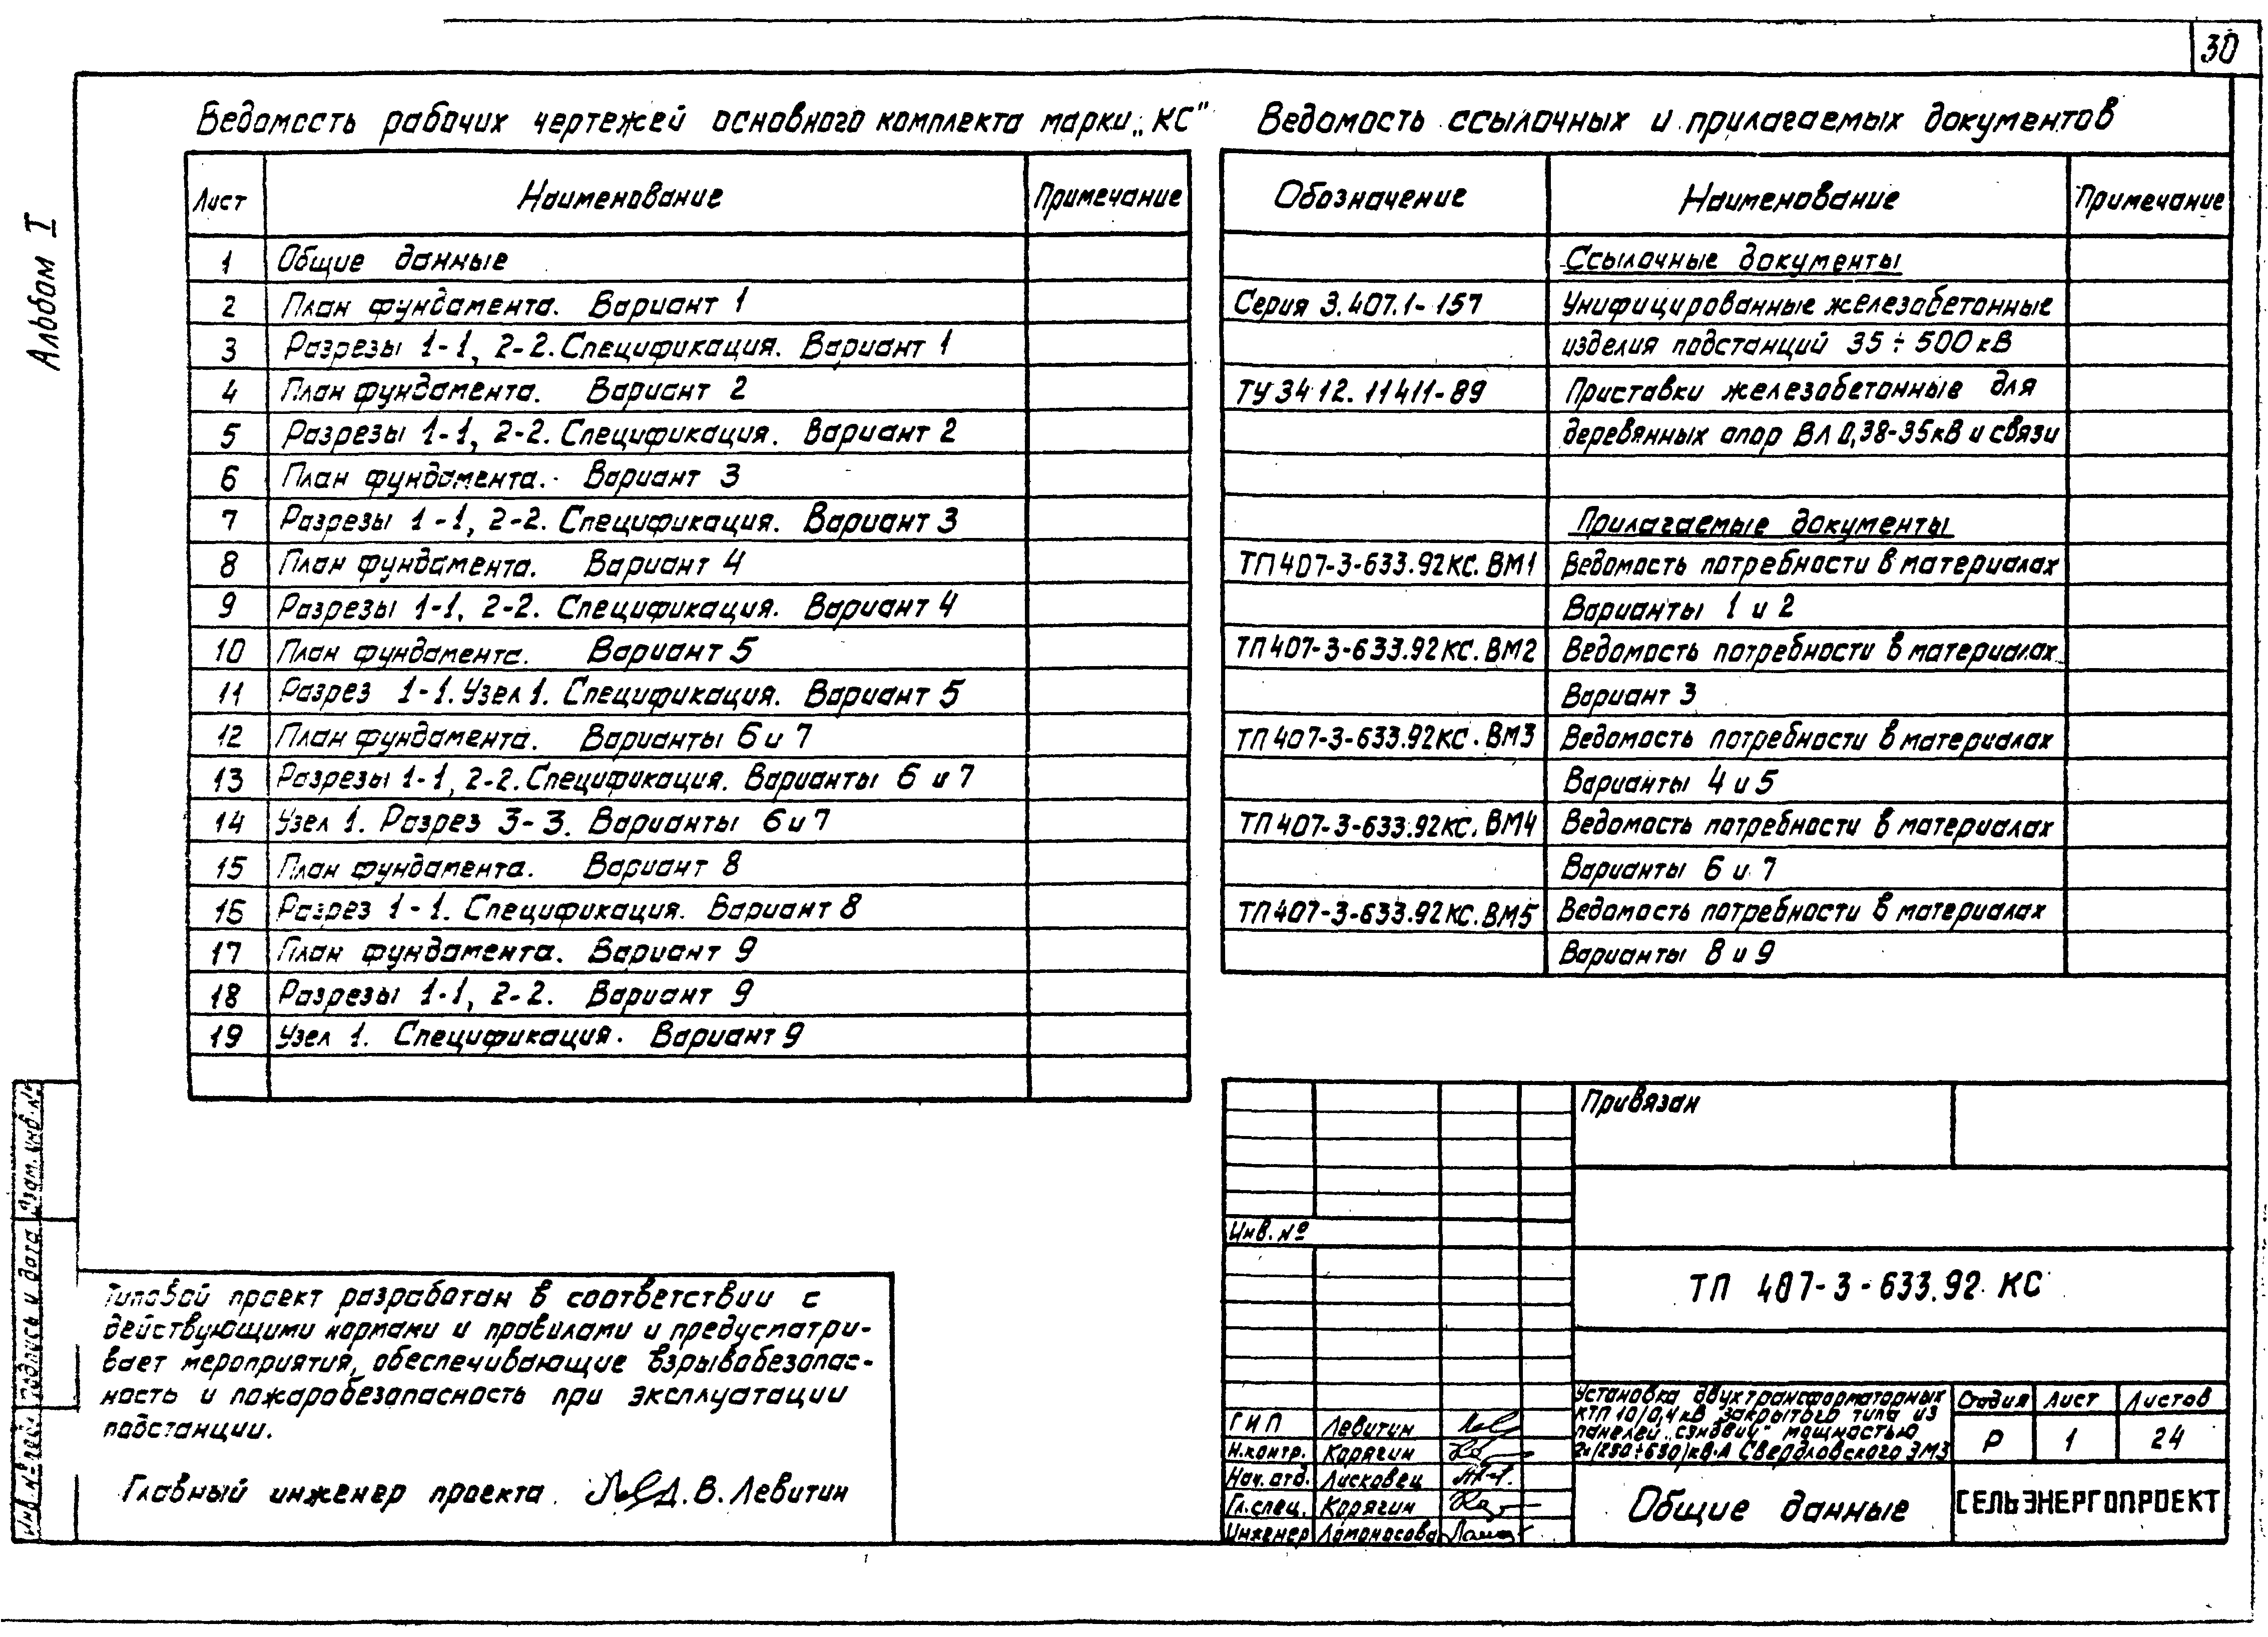 30
Альбом I
Ведомость рабочих чертежей основного комплекта марки „КС"
Лист Наименование Примечание
1 Общие данные
2 План фундамента. Вариант 1
3 Разрезы 1-1, 2-2. Спецификация. Вариант 1
4 План фундамента. Вариант 2
5 Разрезы 1-1, 2-2. Спецификация. Вариант 2
6 План фундамента. Вариант 3
7 Разрезы 1-1, 2-2. Спецификация. Вариант 3
8 План фундамента. Вариант 4
9 Разрезы 1-1, 2-2. Спецификация. Вариант 4
10 План фундамента. Вариант 5
11 Разрез 1-1. Узел 1. Спецификация. Вариант 5
12 План фундамента. Варианты 6 и 7
13 Разрезы 1-1, 2-2. Спецификация. Варианты 6 и 7
14 Узел 1. Разрез 3-3. Варианты 6 и 7
15 План фундамента. Вариант 8
16 Разрез 1-1. Спецификация. Вариант 8
17 План фундамента. Вариант 9
18 Разрезы 1-1, 2-2. Вариант 9
19 Узел 1. Спецификация. Вариант 9
Ведомость ссылочных и прилагаемых документов
Обозначение Наименование Примечание
Ссылочные документы
Серия 3.407.1-157 Унифицированные железобетонные
изделия подстанций 35÷500кВ
ТУ 34 12. 11411-89 Приставки железобетонные для
деревянных опор ВЛ 0,38-35кВ и связи
Прилагаемые документы
ТП 407-3-633.92КС.ВМ1 Ведомость потребности в материалах
Варианты 1 и 2
ТП 407-3-633.92КС.ВМ2 Ведомость потребности в материалах
Вариант 3
ТП 407-3-633.92КС.ВМ3 Ведомость потребности в материалах
Варианты 4 и 5
ТП 407-3-633.92КС.ВМ4 Ведомость потребности в материалах
Варианты 6 и 7
ТП 407-3-633.92КС.ВМ5 Ведомость потребности в материалах
Варианты 8 и 9
Типовой проект разработан в соответствии с
действующими нормами и правилами и предусматри-
вает мероприятия, обеспечивающие взрывобезопас-
ность и пожаробезопасность при эксплуатации
подстанции.
Главный инженер проекта Д.В. Левитин
Взам. инв. №
Подпись и дата
Инв. № подл.
Привязан
Инв. №
ТП 407-3-633.92 КС
Установка двухтрансформаторных
КТП 10/0,4 кВ закрытого типа из
панелей „сэндвич" мощностью
2х(250÷630)кВ·А Свердловского ЭМЗ
Стадия Лист Листов
Р 1 24
ГИП Левитин
Н.контр. Корягин
Нач. отд. Лисковец
Гл. спец. Корягин
Инженер Ломоносова
Общие данные
СЕЛЬЭНЕРГОПРОЕКТ